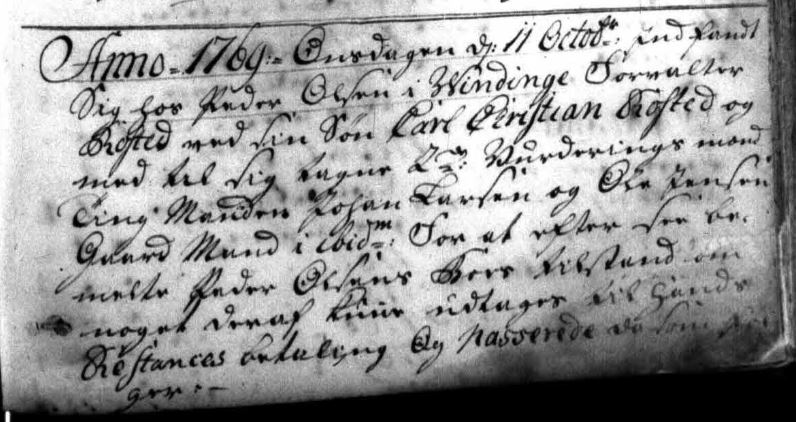 Anno = 1769 = Onsdagen d: 11 Octobr: Ind fandt
Sig hos Peder Olsen i Windinge Forvalter
Kosted ved sin Søn Carl Christian Kosted og
med til sig tagne 2de Vurderings mænd
Ting Manden Johan Larsen og Ole Jensen
Gaard Mand i ibidm: For at efter see be-
melte Peder Olsens Boes tilstand om
noget deraf kunne udtages til hands
Restances betaling Og passerede da som
ger: -